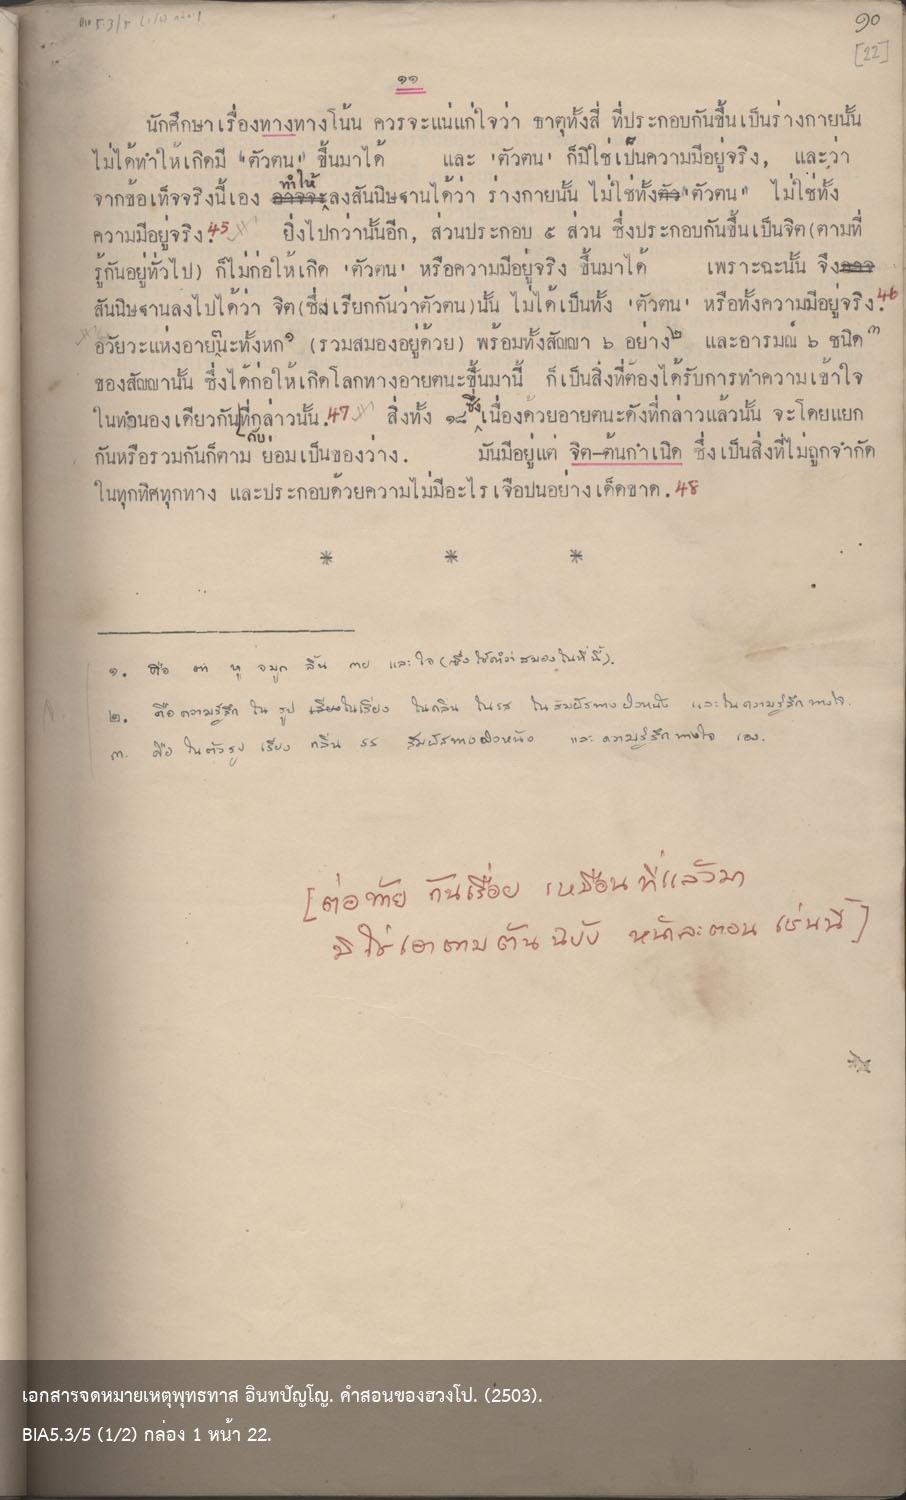 BIA 5.3/5 (1/2) กล่อง 1
๑๐
[22]
๑๑
นักศึกษาเรื่องทางทางโน้น ควรจะแน่แก่ใจว่า ธาตุทั้งสี่ ที่ประกอบกันขึ้นเป็นร่างกายนั้น
ไม่ได้ทำให้เกิดมี "ตัวตน" ขึ้นมาได้ และ "ตัวตน" ก็มิใช่เป็นความมีอยู่จริง, และว่า
จากข้อเท็จจริงนี้เอง ทำให้ลงสันนิษฐานได้ว่า ร่างกายนั้น ไม่ใช่ทั้ง "ตัวตน" ไม่ใช่ทั้ง
ความมีอยู่จริง. 45 ยิ่งไปกว่านั้นอีก, ส่วนประกอบ ๕ ส่วน ซึ่งประกอบกันขึ้นเป็นจิต(ตามที่
รู้กันอยู่ทั่วไป) ก็ไม่ก่อให้เกิด "ตัวตน" หรือความมีอยู่จริง ขึ้นมาได้ เพราะฉะนั้น จึง
สันนิษฐานลงไปได้ว่า จิต(ซึ่งเรียกกันว่าตัวตน)นั้น ไม่ได้เป็นทั้ง "ตัวตน" หรือทั้งความมีอยู่จริง. 46
อวัยวะแห่งอายตนะทั้งหก๑ (รวมสมองอยู่ด้วย) พร้อมทั้งสัญญา ๖ อย่าง๒ และอารมณ์ ๖ ชนิด๓
ของสัญญานั้น ซึ่งได้ก่อให้เกิดโลกทางอายตนะขึ้นมานี้ ก็เป็นสิ่งที่ต้องได้รับการทำความเข้าใจ
ในทำนองเดียวกันกับที่กล่าวนั้น. 47 สิ่งทั้ง ๑๘ ซึ่งเนื่องด้วยอายตนะดังที่กล่าวแล้วนั้น จะโดยแยก
กันหรือรวมกันก็ตาม ย่อมเป็นของว่าง. มันมีอยู่แต่ จิต-ต้นกำเนิด ซึ่งเป็นสิ่งที่ไม่ถูกจำกัด
ในทุกทิศทุกทาง และประกอบด้วยความไม่มีอะไรเจือปนอย่างเด็ดขาด. 48
* * *
๑. คือ ตา หู จมูก ลิ้น กาย และ ใจ (ซึ่งใช้คำว่าสมองในที่นี้).
๒. คือความรู้สึก ใน รูป ในเสียง ในกลิ่น ในรส ในสัมผัสทางผิวหนัง และในความรู้สึกทางใจ.
๓. คือ ในตัวรูป เสียง กลิ่น รส สัมผัสทางผิวหนัง และ ความรู้สึกทางใจ เอง.
[ต่อท้าย กันเรื่อย เหมือนที่แล้วมา
มิใช่เอาตามต้นฉบับ หน้าละตอน เช่นนี้]
เอกสารจดหมายเหตุพุทธทาส อินทปัญโญ. คำสอนของฮวงโป. (2503).
BIA5.3/5 (1/2) กล่อง 1 หน้า 22.